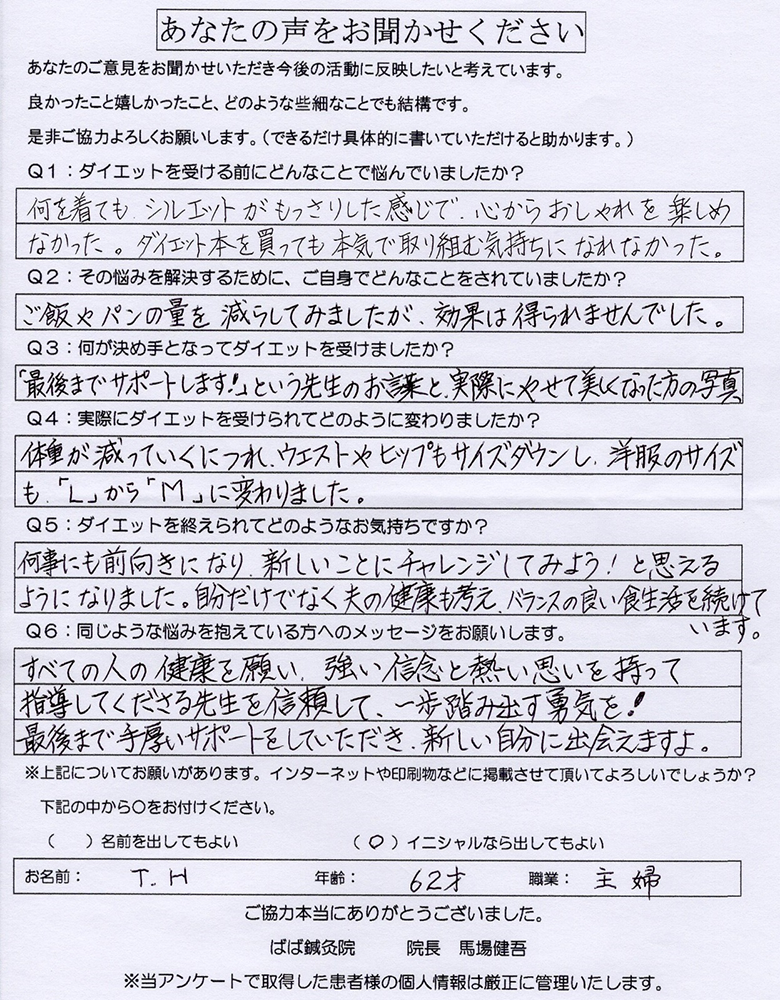 あなたの声をお聞かせください
あなたのご意見をお聞かせいただき今後の活動に反映したいと考えています。
良かったこと嬉しかったこと、どのような些細なことでも結構です。
是非ご協力よろしくお願いします。（できるだけ具体的に書いていただけると助かります。）
Q1：ダイエットを受ける前にどんなことで悩んでいましたか？
何を着ても、シルエットがもっさりした感じで、心からおしゃれを楽しめ
なかった。ダイエット本を買っても本気で取り組む気持ちになれなかった。
Q2：その悩みを解決するために、ご自身でどんなことをされていましたか？
ご飯やパンの量を減らしてみましたが、効果は得られませんでした。
Q3：何が決め手となってダイエットを受けましたか？
「最後までサポートします!」という先生のお言葉と、実際にやせて美しくなった方の写真
Q4：実際にダイエットを受けられてどのように変わりましたか？
体重が減っていくにつれ、ウエストやヒップもサイズダウンし、洋服のサイズ
も、「L」から「M」に変わりました。
Q5：ダイエットを終えられてどのようなお気持ちですか？
何事にも前向きになり、新しいことにチャレンジしてみよう！と思える
ようになりました。自分だけでなく夫の健康も考え、バランスの良い食生活を続けて
います。
Q6：同じような悩みを抱えている方へのメッセージをお願いします。
すべての人の健康を願い、強い信念と熱い思いを持って
指導してくださる先生を信頼して、一歩踏み出す勇気を！
最後まで手厚いサポートをしていただき、新しい自分に出会えますよ。
※上記についてお願いがあります。インターネットや印刷物などに掲載させて頂いてよろしいでしょうか？
下記の中から〇をお付けください。
（　　）名前を出してもよい　（〇）イニシャルなら出してもよい
お名前：　T.H　年齢：　62才　職業：　主婦
ご協力本当にありがとうございました。
ばば鍼灸院　院長　馬場健吾
※当アンケートで取得した患者様の個人情報は厳正に管理いたします。